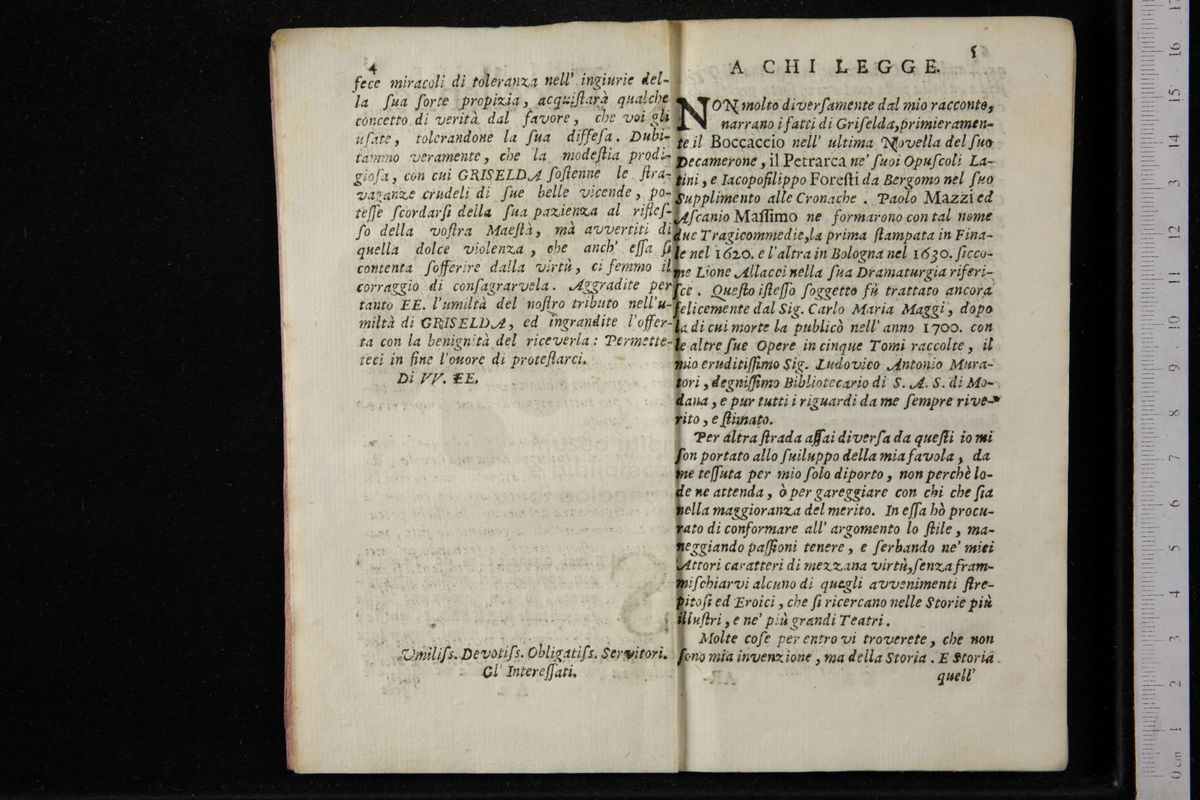 4
fece miracoli di toleranza nell' ingiurie del-
la sua sorte propizia, acquistarà qualche
concetto di verità dal favore, che voi gli
usate, tolerandone la sua diffesa. Dubi-
tammo veramente, che la modestia prodi-
giosa, con cui GRISELDA sostenne le stra-
vaganze crudeli di sue belle vicende, po-
tesse scordarsi della sua pazienza al rifles-
so della vostra Maestà, mà avvertiti di
quella dolce violenza, che anch' essa si
contenta sofferire dalla virtù, ci femmo il
corraggio di consagrarvela. Aggradite per
tanto EE. l'umiltà del nostro tributo nell'u-
miltà di GRISELDA, ed ingrandite l'offer-
ta con la benignità del riceverla: Permette-
teci in fine l'onore di protestarci.
Di VV. EE.
Umiliss. Devotiss. Obligatiss. Servitori.
Gl' Interessati.
5
A CHI LEGGE.
NON molto diversamente dal mio racconto,
narrano i fatti di Griselda, primieramen-
te il Boccaccio nell' ultima Novella del suo
Decamerone, il Petrarca ne' suoi Opuscoli La-
tini, e Iacopofilippo Foresti da Bergomo nel suo
Supplimento alle Cronache. Paolo Mazzi ed
Ascanio Massimo ne formarono con tal nome
due Tragicommedie, la prima stampata in Fina-
le nel 1620. e l'altra in Bologna nel 1630. sicco-
me Lione Allacci nella sua Dramaturgia riferi-
sce. Questo istesso soggetto fù trattato ancora
felicemente dal Sig. Carlo Maria Maggi, dopo
la di cui morte la publicò nell' anno 1700. con
le altre sue Opere in cinque Tomi raccolte, il
mio eruditissimo Sig. Ludovico Antonio Mura-
tori, degnissimo Bibliotecario di S. A. S. di Mo-
dana, e pur tutti i riguardi da me sempre rive-
rito, e stimato.
Per altra strada assai diversa da questi io mi
son portato allo sviluppo della mia favola, da
me tessuta per mio solo diporto, non perchè lo-
de ne attenda, ò per gareggiare con chi che sia
nella maggioranza del merito. In essa hò procu-
rato di conformare all' argomento lo stile, ma-
neggiando passioni tenere, e serbando ne' miei
Attori caratteri di mezzana virtù, senza fram-
mischiarvi alcuno di quegli avvenimenti stre-
pitosi ed Eroici, che si ricercano nelle Storie più
illustri, e ne' più grandi Teatri.
Molte cose per entro vi troverete, che non
sono mia invenzione, ma della Storia. E Storia
quell'